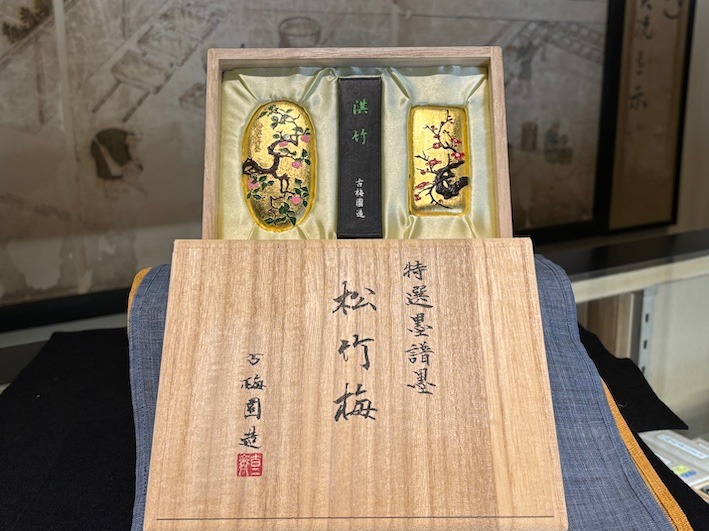 淇竹
古梅園造
特選墨譜墨
松竹梅
古梅園造